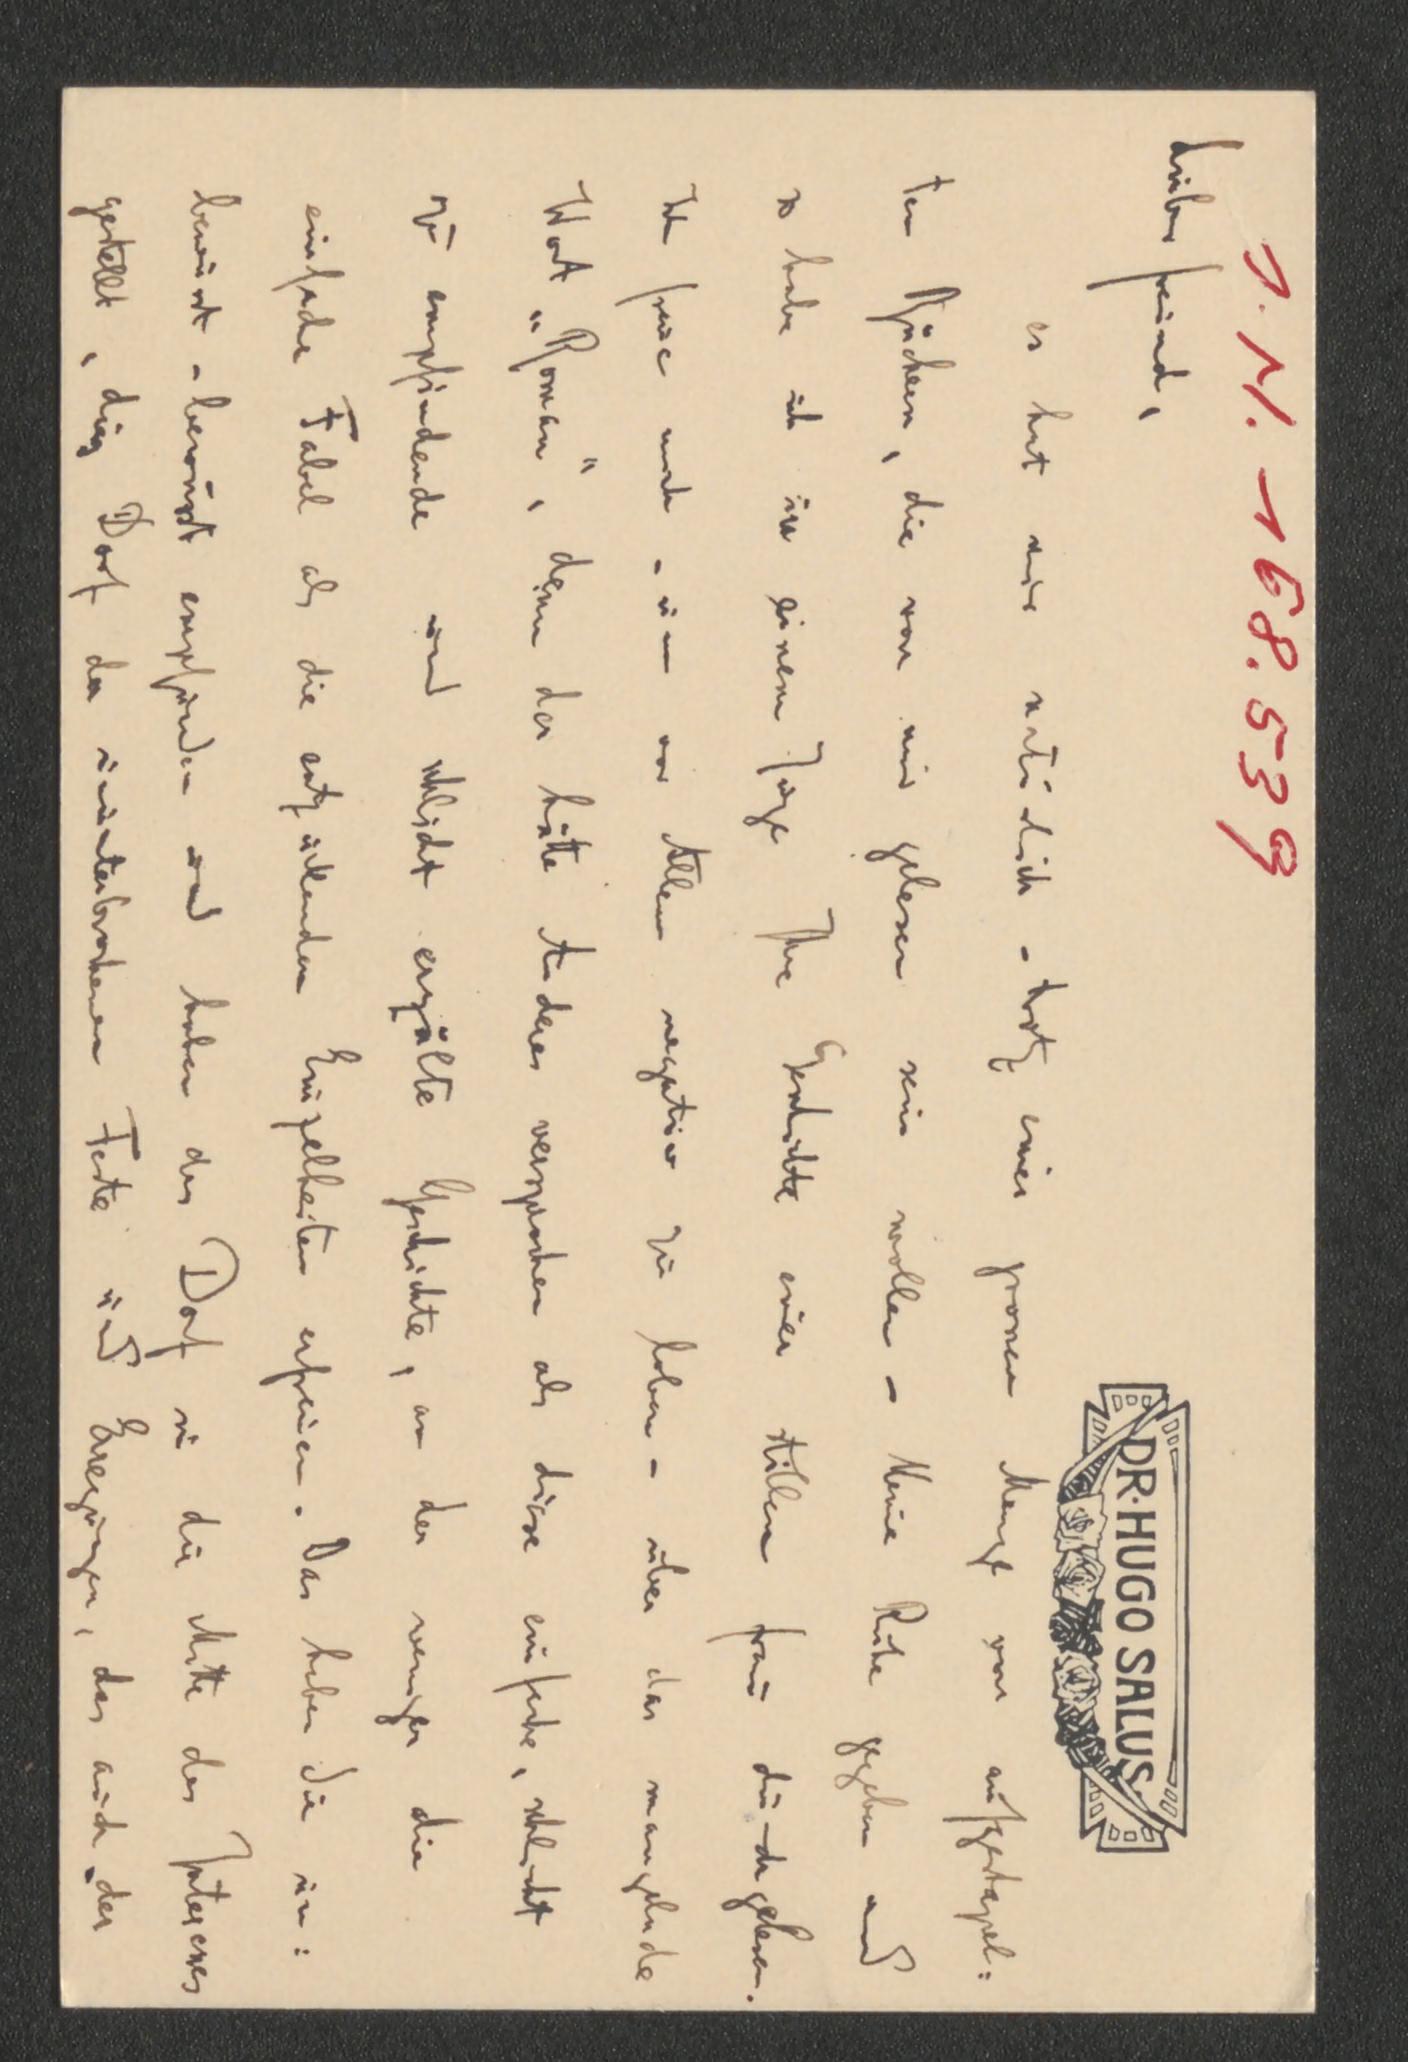 J. N. 168.539
DR. HUGO SALUS
Lieber Freund,
es hat mir natürlich - trotz einer grossen Menge von aufgestapel=
ten Büchern, die von mir gelesen sein wollen - keine Ruhe gegeben und
so habe ich in einem Zuge Ihre Geschichte einer stillen Frau durchgelesen.
Ich freue mich - um vor Allem negativ zu loben - über das mangelnde
Wort „Roman", denn der hätte Anderes versprochen als diese einfache, schlicht
zu empfindende und schlicht erzälte Geschichte, an der weniger die
einfache Fabel als die entzückenden Einzelheiten erfreuen. Das haben Sie un=
bewusst - bewusst empfunden und haben das Dorf in die Mitte des Interesses
gestellt, dies Dorf der ununterbrochenen Feste und Erregungen, das auch der